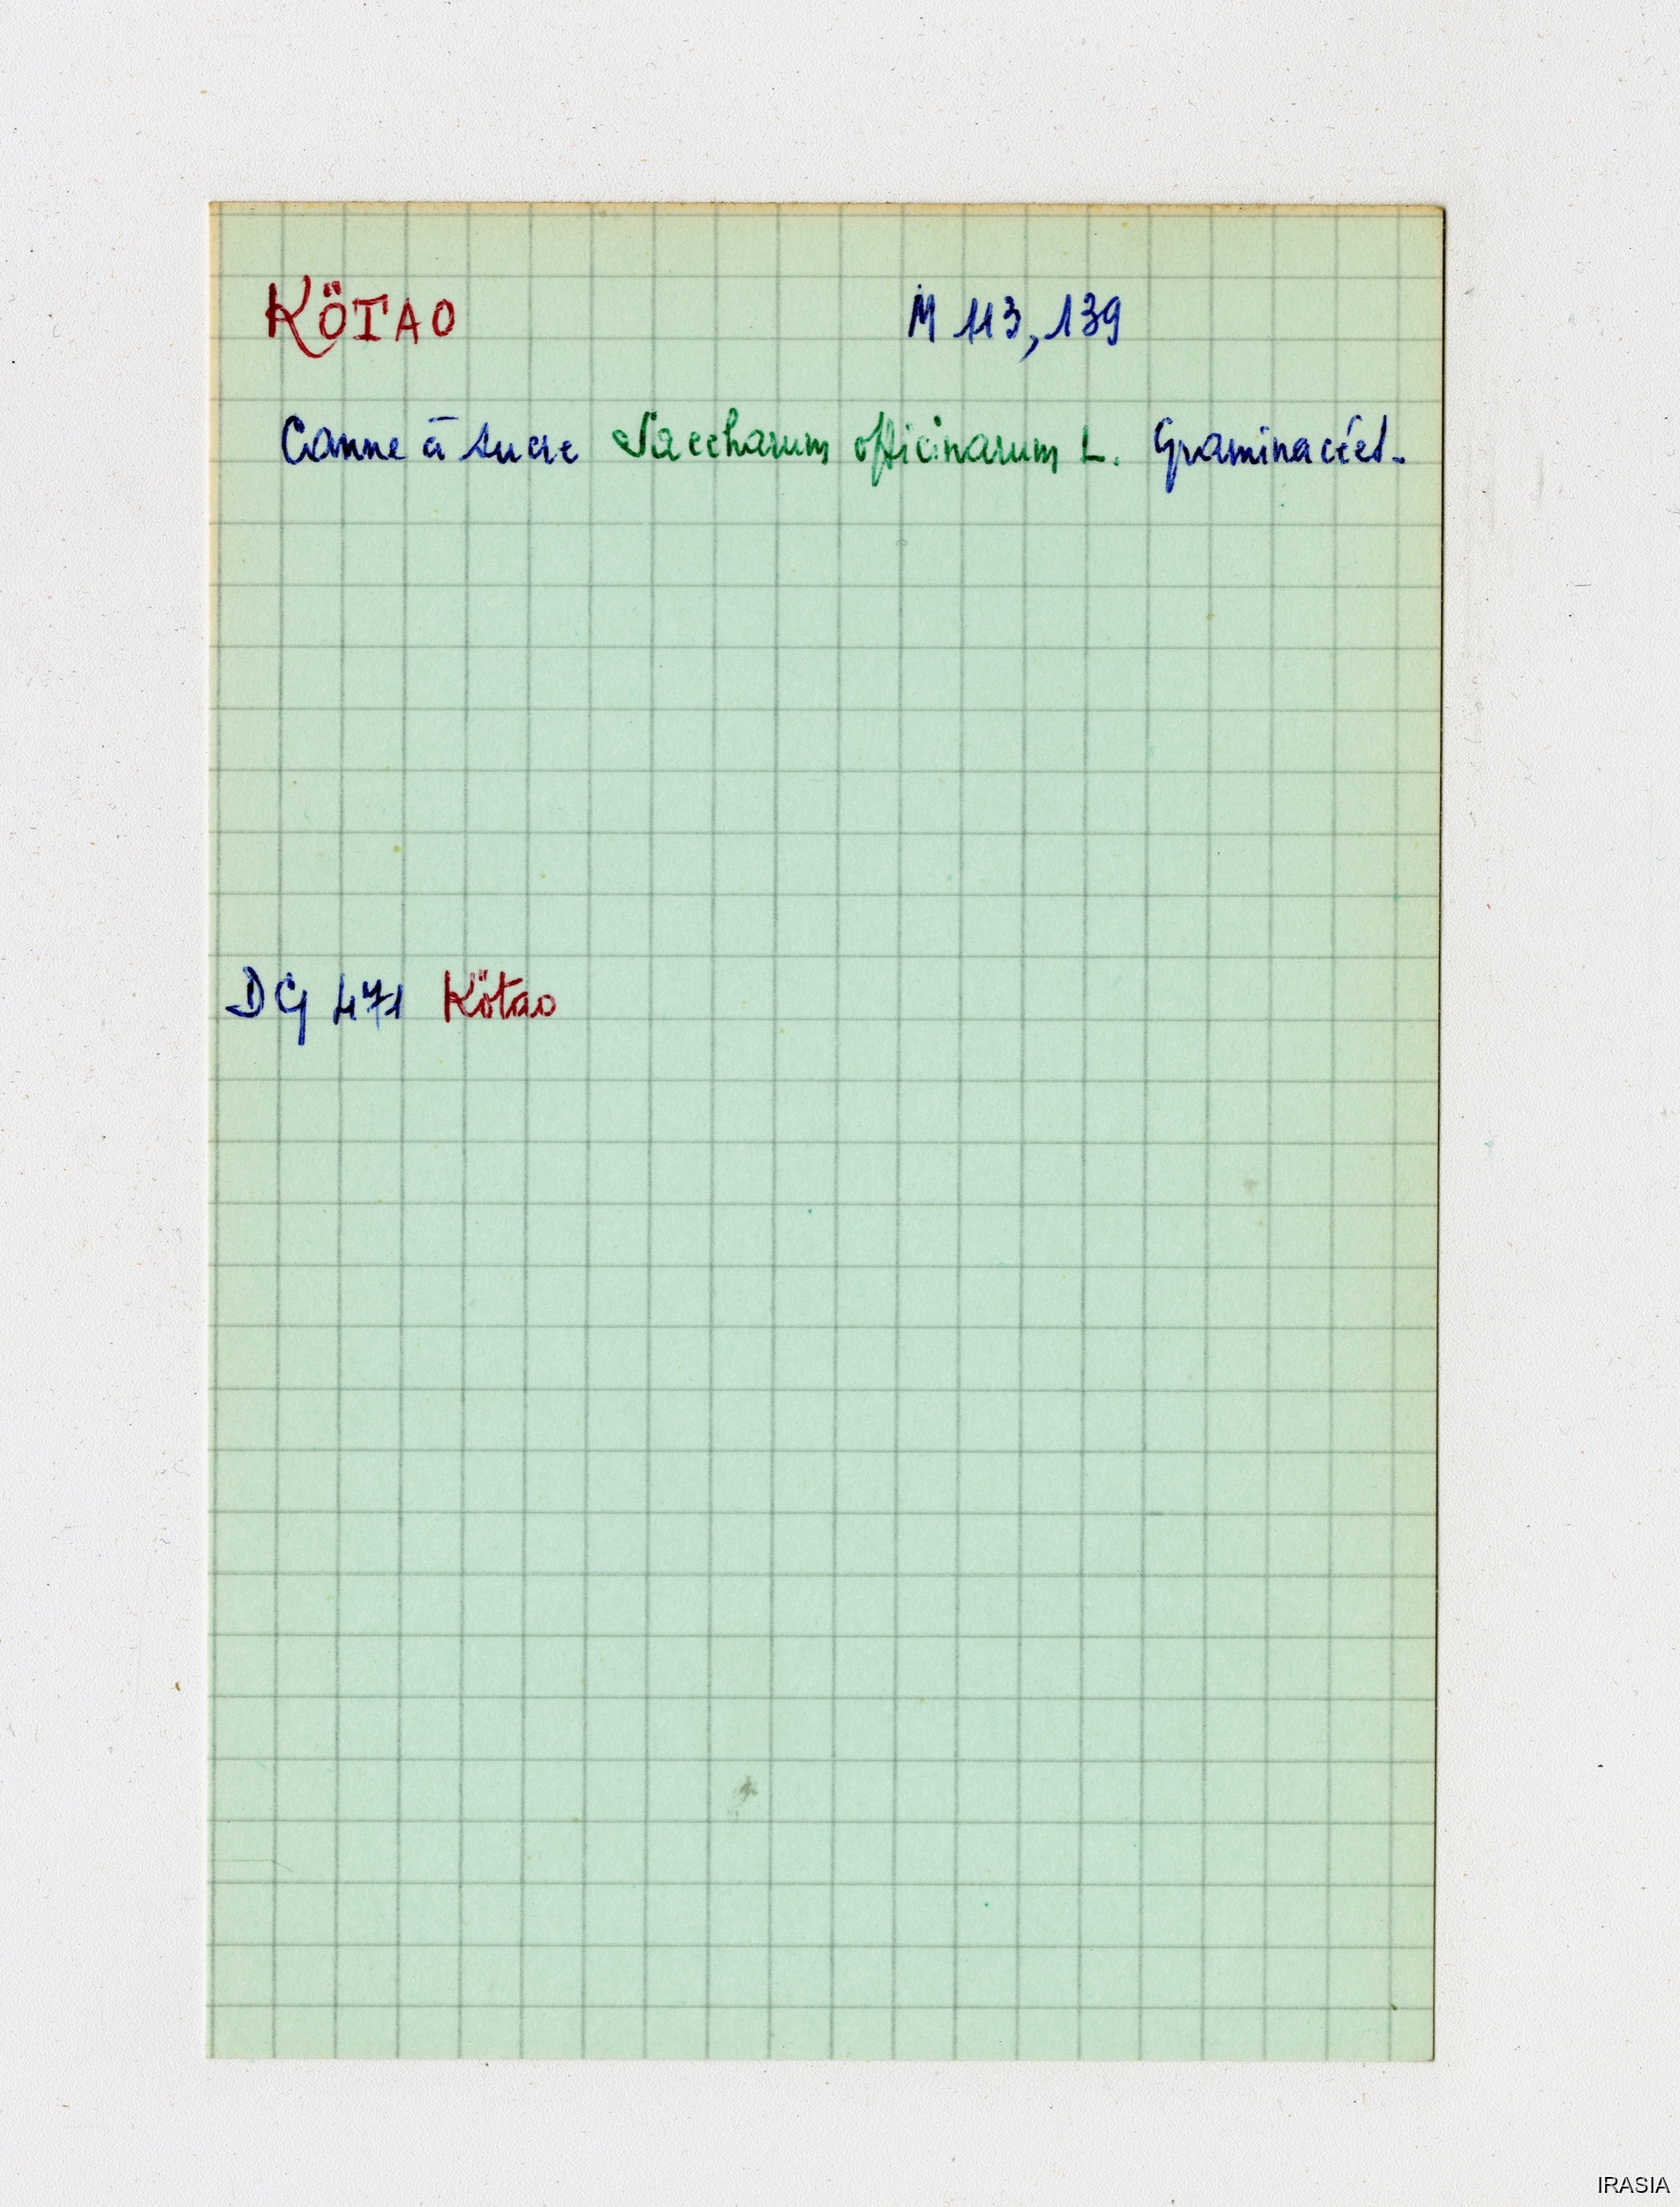 KÖTAO M 113, 139
Canne à sucre Saccharum officinarum L. Graminacées.
DG 471 Kötao
IRASIA